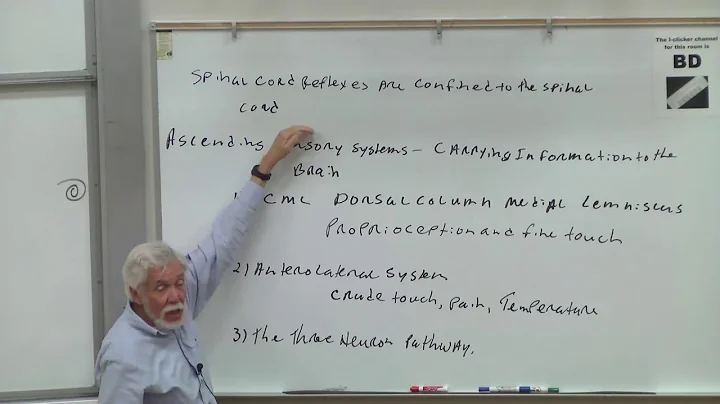 Spinal cord Reflexes are confined to the spinal
cord
The i-clicker channel
for this room is
BD
Ascending nsory systems - carrying information to the
Brain
CML Dorsal column medial Lemniscus
Proprioception and fine touch
2) Anterolateral System
crude touch, pain, Temperature
3) The Three Neuron Pathway.